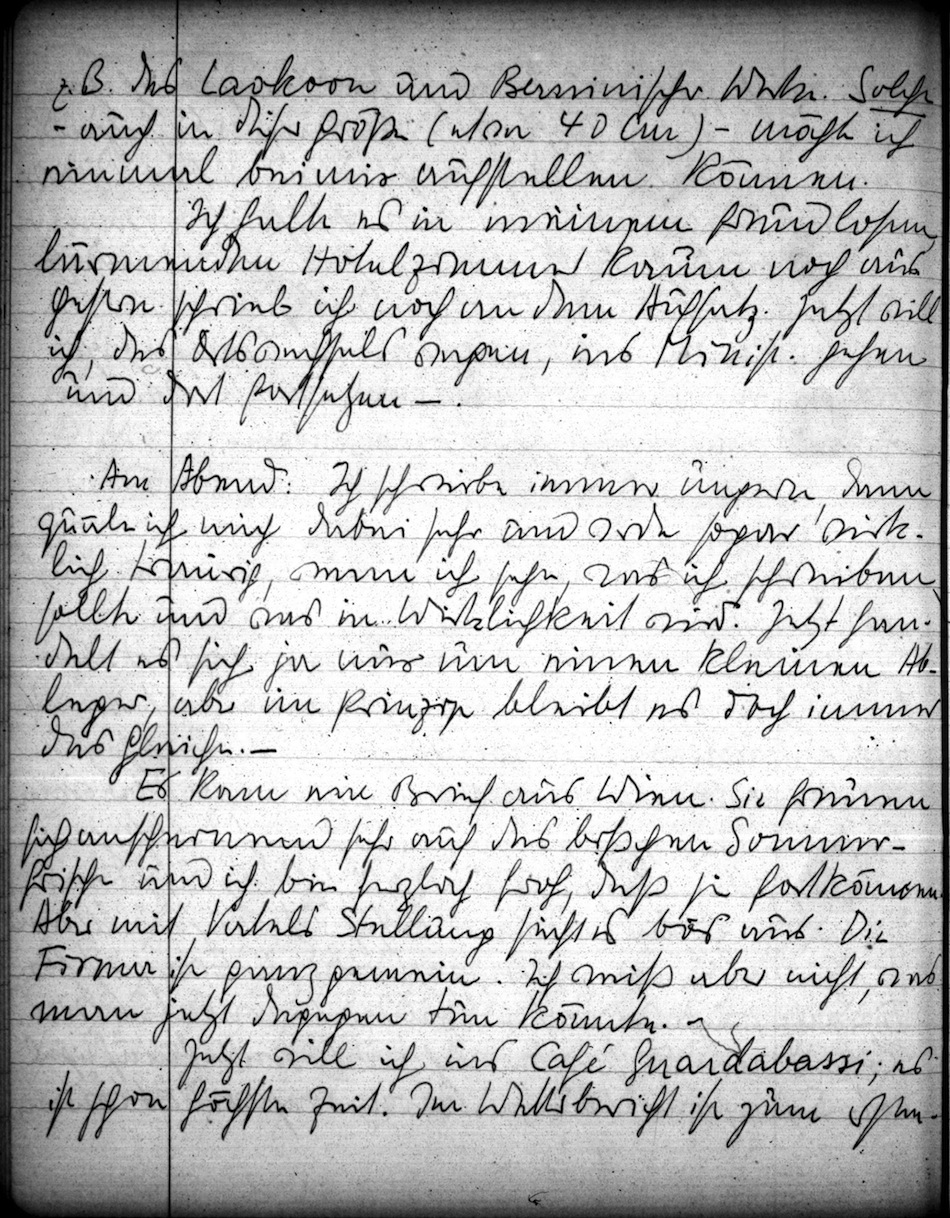 z. B. des Laokoon und Berninischer Werke. Solche
- auch in dieser Größe (etwa 40 cm) - möchte ich
einmal bei mir aufstellen können.
Ich halte es in meinem freudlosen,
lärmenden Hotelzimmer kaum noch aus
Gestern schrieb ich noch an dem Aufsatz. Jetzt will
ich, des Ortswechsels wegen, ins Minist. gehen
und dort fortsetzen —.
Am Abend: Ich schreibe immer ungern, denn
quäle ich mich dabei sehr und werde sogar wirk-
lich traurig, wenn ich sehe, was ich schreiben
sollte und was in Wirklichkeit wird. Jetzt han-
delt es sich ja nur um einen kleinen Ab-
leger, aber im Prinzip bleibt es doch immer
das Gleiche. —
Es kam ein Brief aus Wien. Sie freuen
sich anscheinend sehr auf das bißchen Sommer-
frische und ich bin herzlich froh, daß sie fortkommen.
Aber mit Vatels Stellung sieht es bös aus. Die
Firma ist ganz gemein. Ich weiß aber nicht, was
man jetzt dagegen tun könnte. -
Jetzt will ich ins Café Guardabassi; es
ist schon höchste Zeit. Im Wetterbericht ist zum ersten-